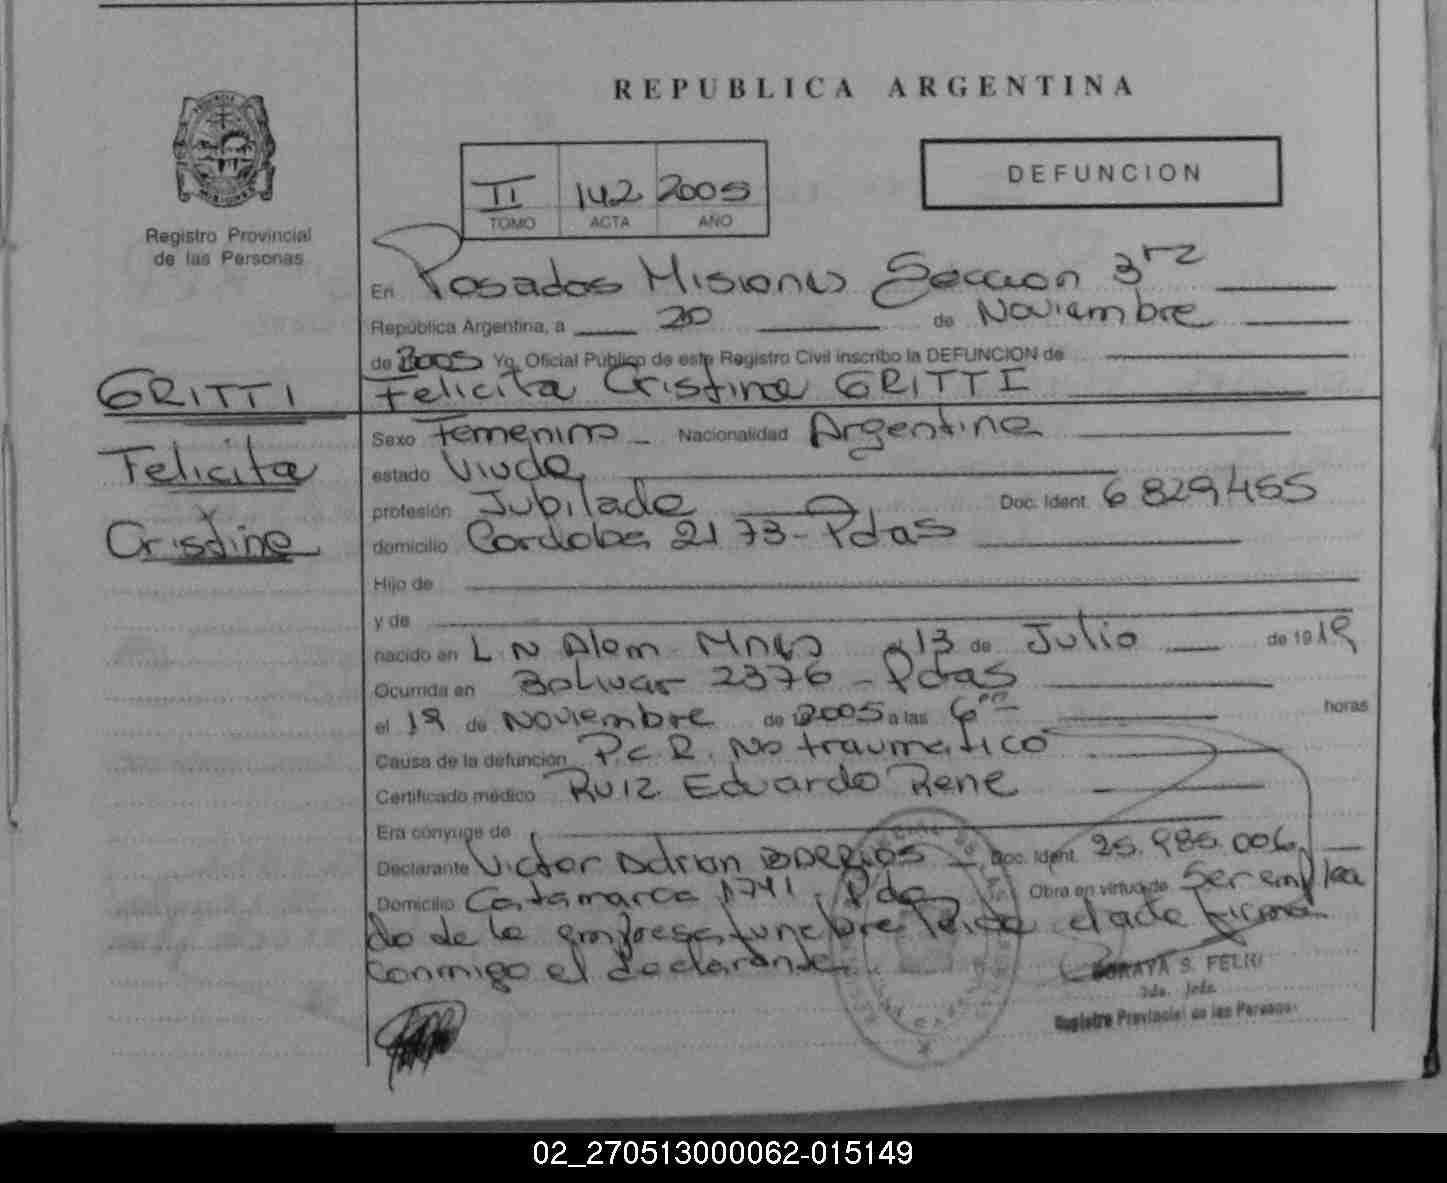 REPUBLICA ARGENTINA
II 142 2005
TOMO ACTA AÑO
DEFUNCION
Registro Provincial
de las Personas
En Posadas Misiones Sección 3ra
República Argentina, a 20 de Noviembre
de 2005 Yo, Oficial Público de este Registro Civil inscribo la DEFUNCION de
Felicita Cristina GRITTI
GRITTI
Felicita
Cristina
Sexo Femenino Nacionalidad Argentina
estado Viuda
profesión Jubilada Doc. Ident. 6829455
domicilio Cordoba 2173 - Pdas
Hijo de
y de
nacido en L N Alem Mnes a 13 de Julio de 1919
Ocurrida en Bolivar 2376 - Pdas
el 19 de Noviembre de 2005 a las 6 horas
Causa de la defunción P.C.R. No traumatico
Certificado médico Ruiz Eduardo Rene
Era cónyuge de
Declarante Victor Adrian Doc. Ident. 25.985.006
Domicilio Catamarca 1741, Pdas Obra en virtud de Ser emplea
do de la empresa funebre Leida el acta firma
conmigo el declarante
SORAYA S. FELIU
Registro Provincial de las Personas
02_270513000062-015149